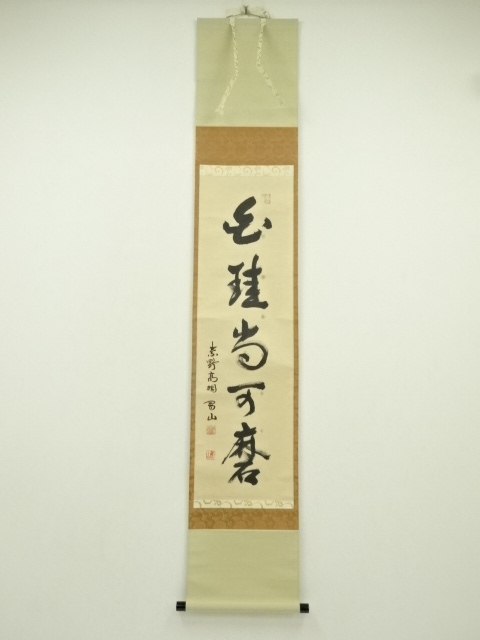 白珪尚可磨
紫野高桐 寛山